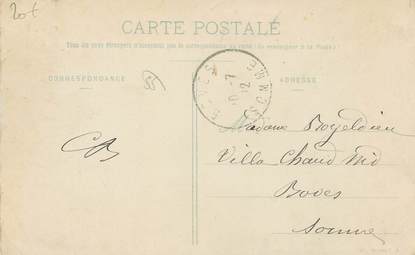 20f
CARTE POSTALE
Tous les pays étrangers n'acceptent pas la correspondance au recto (Se renseigner à la Poste)
CORRESPONDANCE
ADRESSE
BOVES
SOMME
-7
12
Madame Boyeldieu
Villa Chaud Nid
Boves
Somme
CB